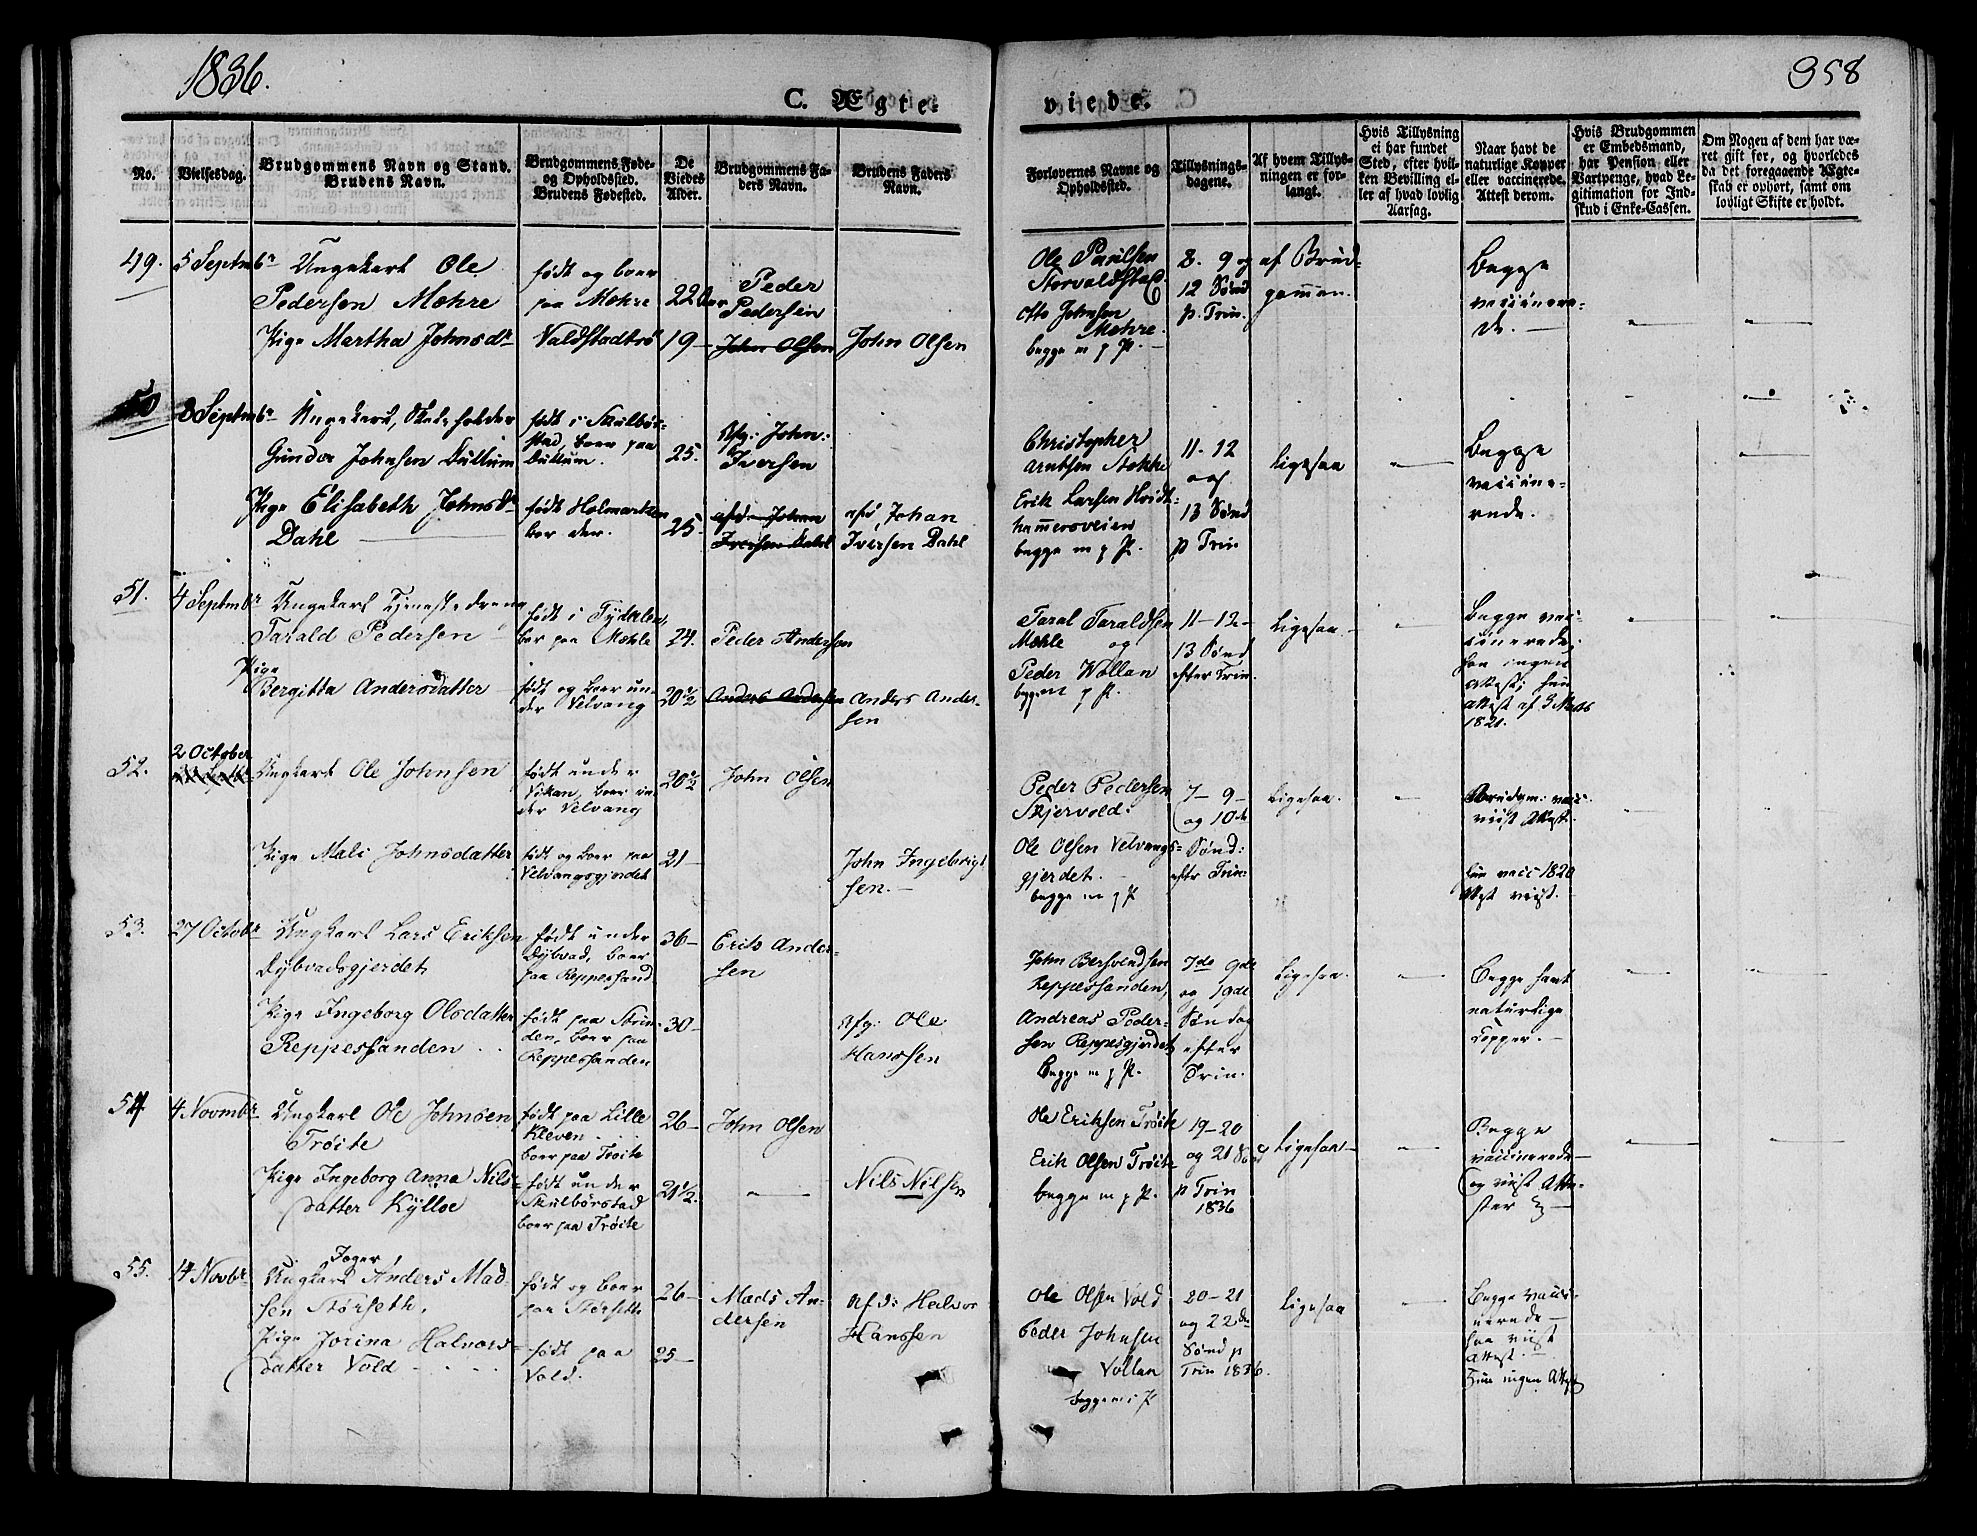 1836.
358
C. Ægte-
viede.
No.
Vielsesdag.
Brudgommens Navn og Stand.
Brudens Navn.
Brudgommens Føde-
og Opholdssted.
Brudens Fødested.
De
Viedes
Alder.
Brudgommens Fa-
ders Navn.
Brudens Faders
Navn.
Forlovernes Navne og
Opholdssted.
Tillysnings-
dagene.
Af hvem Tillys-
ningen er for-
langt.
Hvis Tillysning
ei har fundet
Sted, efter hvil-
ken Bevilling el-
ler af hvad lovlig
Aarsag.
Naar havt de
naturlige Kopper
eller vaccinerede.
Attest derom.
Hvis Brudgommen
er Embedsmand,
har Pension eller
Vartpenge, hvad Le-
gitimation for Ind-
skud i Enke-Cassen.
Om Nogen af dem har væ-
ret gift før, og hvorledes
da det foregaaende Ægte-
skab er ophørt, samt om
lovligt Skifte er holdt.
49.
5 Septmbr
Ungekarl Ole
Pedersen Mæhre
Pige Martha Johnsdr
født og boer
paa Mæhre
Valdstadtrø
22
19
Peder
Pedersen
John Olsen
John Olsen
Ole Paulsen
Otto Johnsen
Mæhre.
begge m p P.
8. 9 og
12 Sønd
p. Trin.
af Brud-
gommen.
Begge
vaccinere-
de.
50
8 Septmbr
Ungekarl,
Gunder Johnsen Dullum
Pige Elisabeth Johnsdr
Dahl
født i Skulbør-
stad, boer paa
Dullum.
født Holmarken
boer der.
25.
25.
Afg: John
Iversen
afd. Johan
Iversen Dahl
afd, Johan
Iversen Dahl
Christopher
Arntsen Stokke
Erik Larsen
begge m p P.
11. 12
og
13 Sønd
p Trin
ligesaa
Begge
vaccine-
rede.
51.
4 Septmbr
Ungekarl Tjenestedreng
Tarald Pedersen
Pige
Bergitta Andersdatter
født i Tydalen,
boer paa Mæhle
født og boer un-
der Velvang
24.
20½
Peder Andersen
Anders Andersen
Anders Ander-
sen
Taral Taraldsen
Mæhle og
Peder Wollan
begge m p P.
11-12-
13 Sønd
efter Trin.
Ligesaa
Begge vac-
cinerede;
han ingen
Attest; hun
Attest af
1821.
52.
2 October
Ungkarl Ole Johnsen
Pige Mali Johnsdatter
født under
Vikan, boer un-
der Velvang
født og boer paa
Velvangsgjerdet
20½
21
John Olsen
John Ingebrigt-
sen.
Peder Pedersen
Skjervold.
Ole Olsen Velvangs-
gjerdet.
begge m p P
7- 9-
og 10de
Sønd:
efter Trin
Ligesaa.
Brudgm: vacc.
viist Attest.
hun vacc 1820
Attest viist.
53.
27 Octobr
Ungkarl Lars Eriksen
Dybvadsgjerdet
Pige Ingeborg Olsdatter
Reppessanden
født under
Dybvad, boer
paa Reppessand
født paa Strin-
den, boer paa
Reppessanden
36
30
Erik Ander-
sen
Afg: Ole
Hanssen
John Bersvendsen
Reppessanden,
Andreas Peder-
sen Reppesgjerdet
begge m p P.
7de 9de
og 19de
Søndag
efter
Trin.
Ligesaa.
Begge havt
naturlige
Kopper.
54.
4 Novmbr
Ungkarl Ole Johnsen
Trøite
Pige Ingeborg Anna Nils-
datter Kylloe
født paa Lille
Kleven
boer paa Trøite
født under
Skulbørstad
boer paa Trøite
26
21½.
John Olsen
Nils Nilsen
Ole Eriksen Trøite
Erik Olsen Trøite
begge m p P.
19-20
og 21 Sønd
p Trin
1836
Ligesaa
Begge
vaccinerede
og viist Atte-
ster
55.
4 Novbr
Jæger
Ungkarl Anders Mad-
sen Størseth,
Pige Jorina Halvors-
datter Vold
født og boer
paa Størseth
født paa
Vold.
26
25
Mads An-
dersen
Afd: Halvor
Hanssen
Ole Olsen Vold
Peder Johnsen
Vollan
begge m p P
20-21
og 22de
Sønd p
Trin 1836.
ligesaa
Begge vacci-
nerede
han viist
Attest.
hun ingen Attest